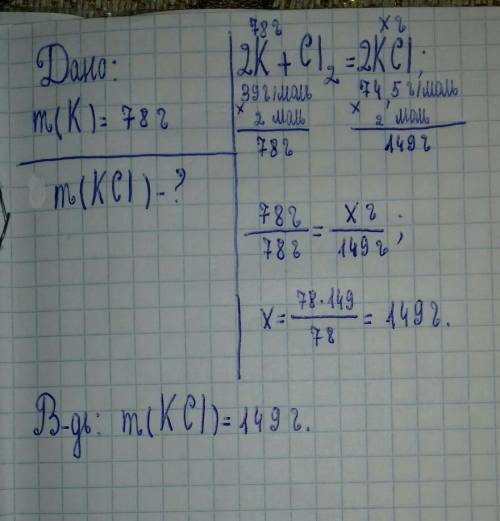 Дано:
m(K)= 78г
m(KCl)-?
78г xг
2K + Cl₂ = 2KCl;
39г/моль 74,5г/моль
x 2 моль x 2 моль
78г 149г
78г/78г = Xг/149г;
X= 78·149/78 = 149г.
В-дь: m(KCl)=149г.